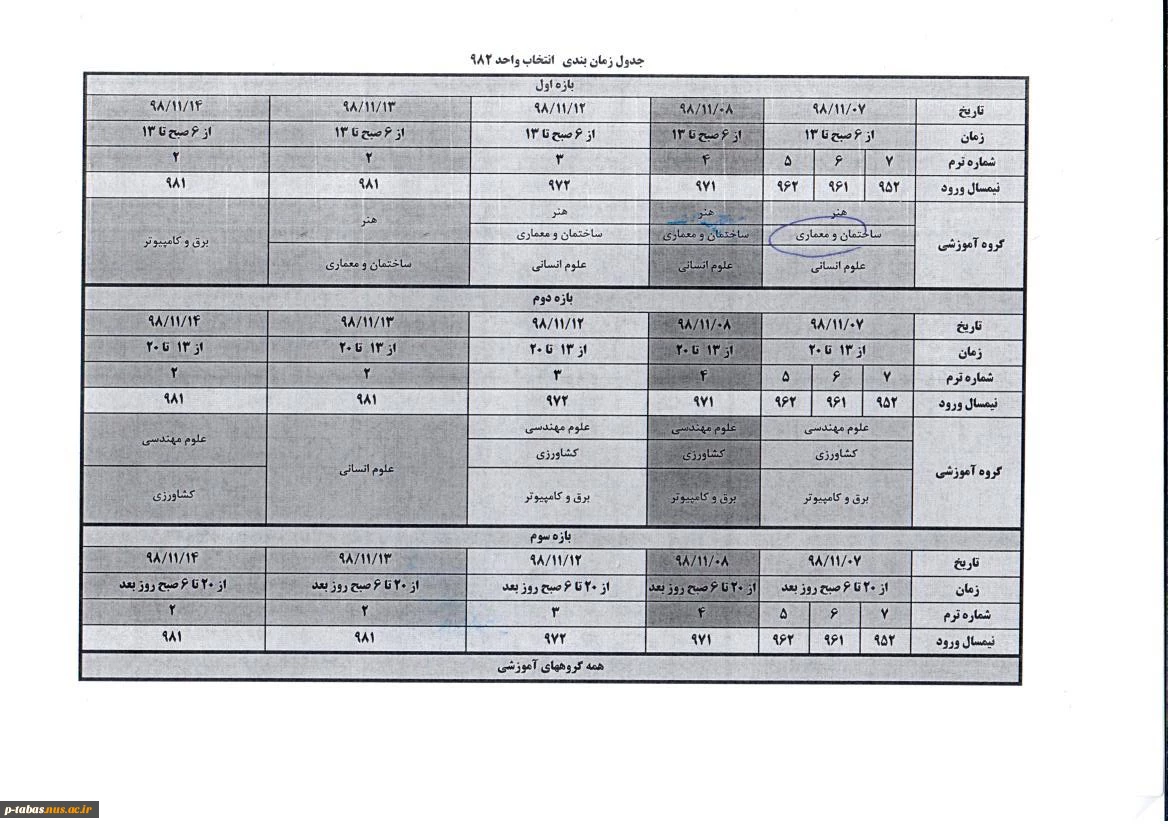 جدول زمان بندی انتخاب واحد ۹۸۲
بازه اول
تاریخ ۹۸/۱۱/۰۷ ۹۸/۱۱/۰۸ ۹۸/۱۱/۱۲ ۹۸/۱۱/۱۳ ۹۸/۱۱/۱۴
زمان از ۶ صبح تا ۱۳ از ۶ صبح تا ۱۳ از ۶ صبح تا ۱۳ از ۶ صبح تا ۱۳ از ۶ صبح تا ۱۳
شماره ترم ۷ ۶ ۵ ۴ ۳ ۲ ۲
نیمسال ورود ۹۵۲ ۹۶۱ ۹۶۲ ۹۷۱ ۹۷۲ ۹۸۱ ۹۸۱
گروه آموزشی
هنر هنر هنر هنر برق و کامپیوتر
ساختمان و معماری ساختمان و معماری ساختمان و معماری
علوم انسانی علوم انسانی علوم انسانی ساختمان و معماری
بازه دوم
تاریخ ۹۸/۱۱/۰۷ ۹۸/۱۱/۰۸ ۹۸/۱۱/۱۲ ۹۸/۱۱/۱۳ ۹۸/۱۱/۱۴
زمان از ۱۳ تا ۲۰ از ۱۳ تا ۲۰ از ۱۳ تا ۲۰ از ۱۳ تا ۲۰ از ۱۳ تا ۲۰
شماره ترم ۷ ۶ ۵ ۴ ۳ ۲ ۲
نیمسال ورود ۹۵۲ ۹۶۱ ۹۶۲ ۹۷۱ ۹۷۲ ۹۸۱ ۹۸۱
گروه آموزشی
علوم مهندسی علوم مهندسی علوم مهندسی علوم انسانی علوم مهندسی
کشاورزی کشاورزی کشاورزی
برق و کامپیوتر برق و کامپیوتر برق و کامپیوتر کشاورزی
بازه سوم
تاریخ ۹۸/۱۱/۰۷ ۹۸/۱۱/۰۸ ۹۸/۱۱/۱۲ ۹۸/۱۱/۱۳ ۹۸/۱۱/۱۴
زمان از ۲۰ تا ۶ صبح روز بعد از ۲۰ تا ۶ صبح روز بعد از ۲۰ تا ۶ صبح روز بعد از ۲۰ تا ۶ صبح روز بعد از ۲۰ تا ۶ صبح روز بعد
شماره ترم ۷ ۶ ۵ ۴ ۳ ۲ ۲
نیمسال ورود ۹۵۲ ۹۶۱ ۹۶۲ ۹۷۱ ۹۷۲ ۹۸۱ ۹۸۱
همه گروههای آموزشی
p-tabas.nus.ac.ir